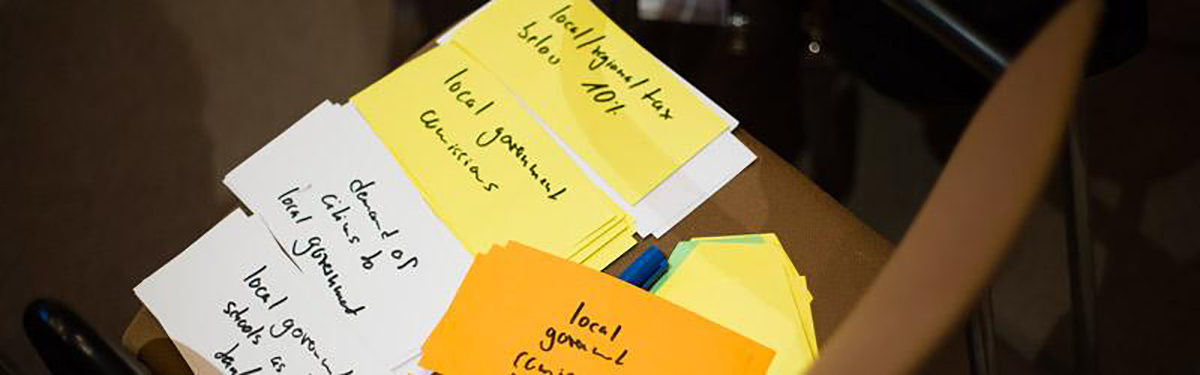 local/regional tax
below 10%
local government
comissions
demand of
citiens to
local government
local governm
schools as
local
goverment
comis